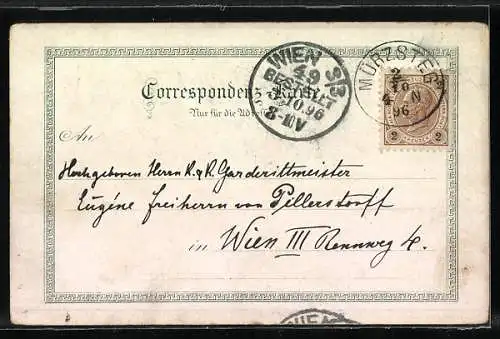 Correspondenz-Karte
Nur für die Adresse
WIEN
49
BESTELLT
3.10.96
8-
V
MÜRZSTEG
2
10
4 N
96
2 2
An
Hochgeboren Herrn K. & K. Garderittmeister
Eugéne Freiherrn von Pillerstorff
in Wien III Rennweg 4.
WIEN